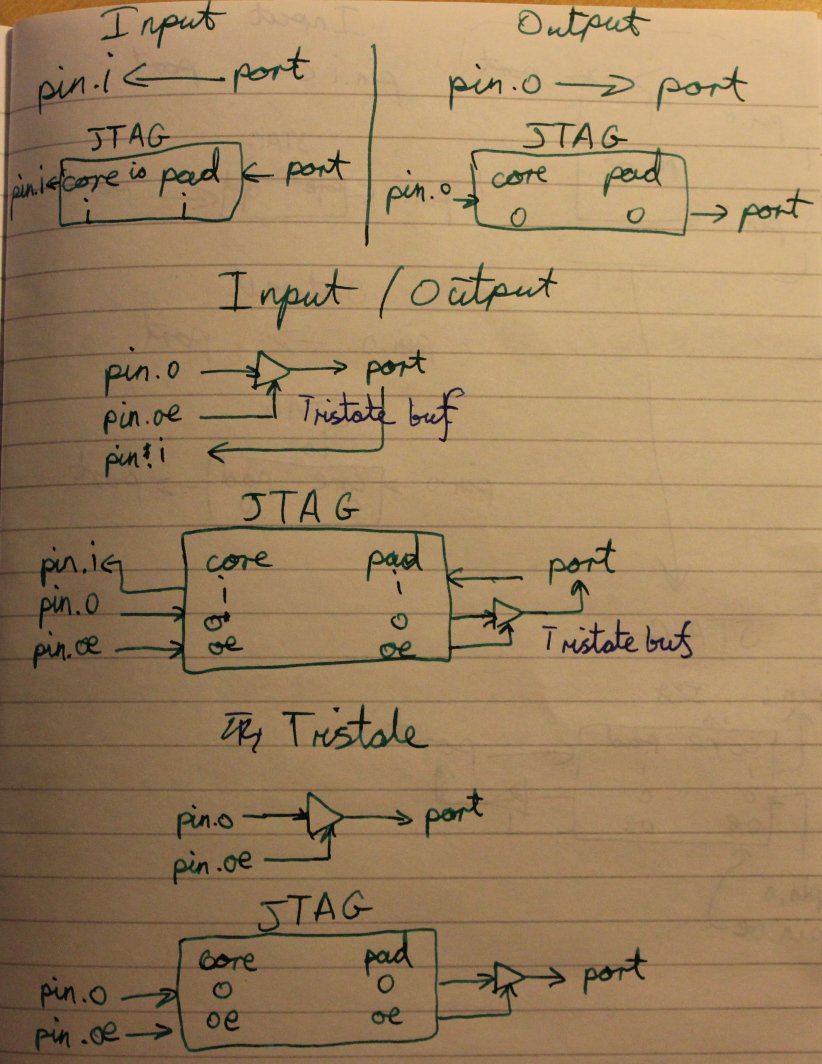 Input
pin.i port
JTAG
pin.i core io pad port
i i
Output
pin.o port
JTAG
pin.o core pad
o o port
Input / Output
pin.o port
pin.oe Tristate buf
pin.i
JTAG
pin.i core pad port
i i
pin.o o o
pin.oe oe oe Tristate buf
Tristate
pin.o port
pin.oe
JTAG
core pad port
pin.o o o
pin.oe oe oe